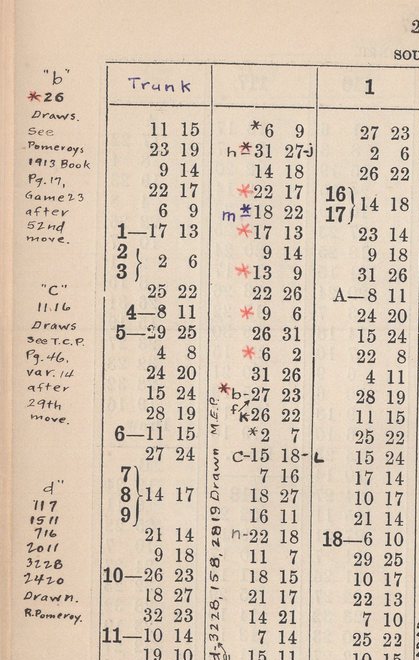 "b"
*26
Draws.
See
Pomeroys
1913 Book
Pg. 17,
Game 23
after
52nd
move.
"C"
11.16
Draws
See T.C.P.
Pg. 46,
var. 14
after
29th
move.
d"
117
1511
716
2011
3228
2420
Drawn.
R. Pomeroy.
Trunk
11 15
23 19
9 14
22 17
6 9
1—17 13
2
3} 2 6
25 22
4—8 11
5—29 25
4 8
24 20
15 24
28 19
6—11 15
27 24
7
8}14 17
9
21 14
9 18
10—26 23
18 27
32 23
11—10 14
19 10
*6 9
h*31 27-j
14 18
*22 17
m*18 22
*17 13
9 14
*13 9
22 26
*9 6
26 31
*6 2
31 26
*b-27 23
f K-26 22
*2 7
C-15 18-L
7 16
18 27
16 11
n-22 18
11 7
18 15
21 17
14 21
7 14
15 11
3228, 158, 2819 Drawn M.E.P.
2
SOU
1
27 23
2 6
26 22
16
17}14 18
23 14
9 18
31 26
A—8 11
24 20
15 24
22 8
4 11
28 19
11 15
25 22
15 24
17 14
10 17
21 14
18—6 10
29 25
10 17
22 13
7 10
25 22
10 15